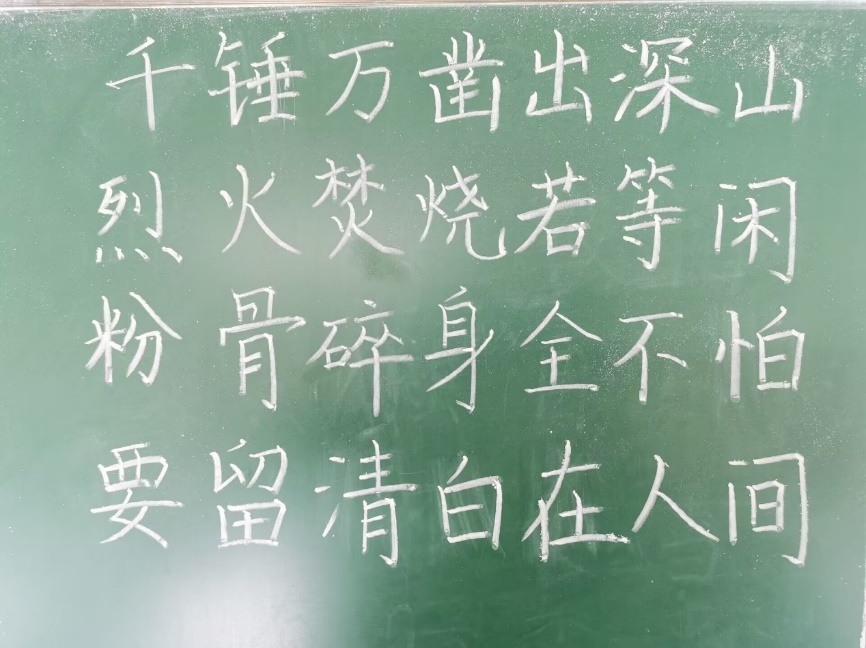 千锤万凿出深山
烈火焚烧若等闲
粉骨碎身全不怕
要留清白在人间